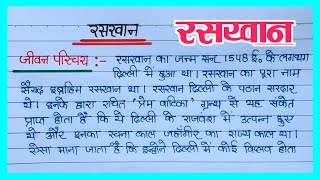 रसखान
रसखान
जीवन परिचय :- रसखान का जन्म सन् 1548 ई० के लगभग
दिल्ली में हुआ था। रसखान का पूरा नाम
सैय्यद इब्राहिम रसखान था। रसखान दिल्ली के पठान सरदार
थे। इनके द्वारा रचित 'प्रेम वाटिका' ग्रन्थ से यह संकेत
प्राप्त होता है कि ये दिल्ली के राजवंश में उत्पन्न हुए
थे और इनका रचना काल जहाँगीर का राज्य काल था।
ऐसा माना जाता है कि इन्होंने दिल्ली में कोई विप्लव होता